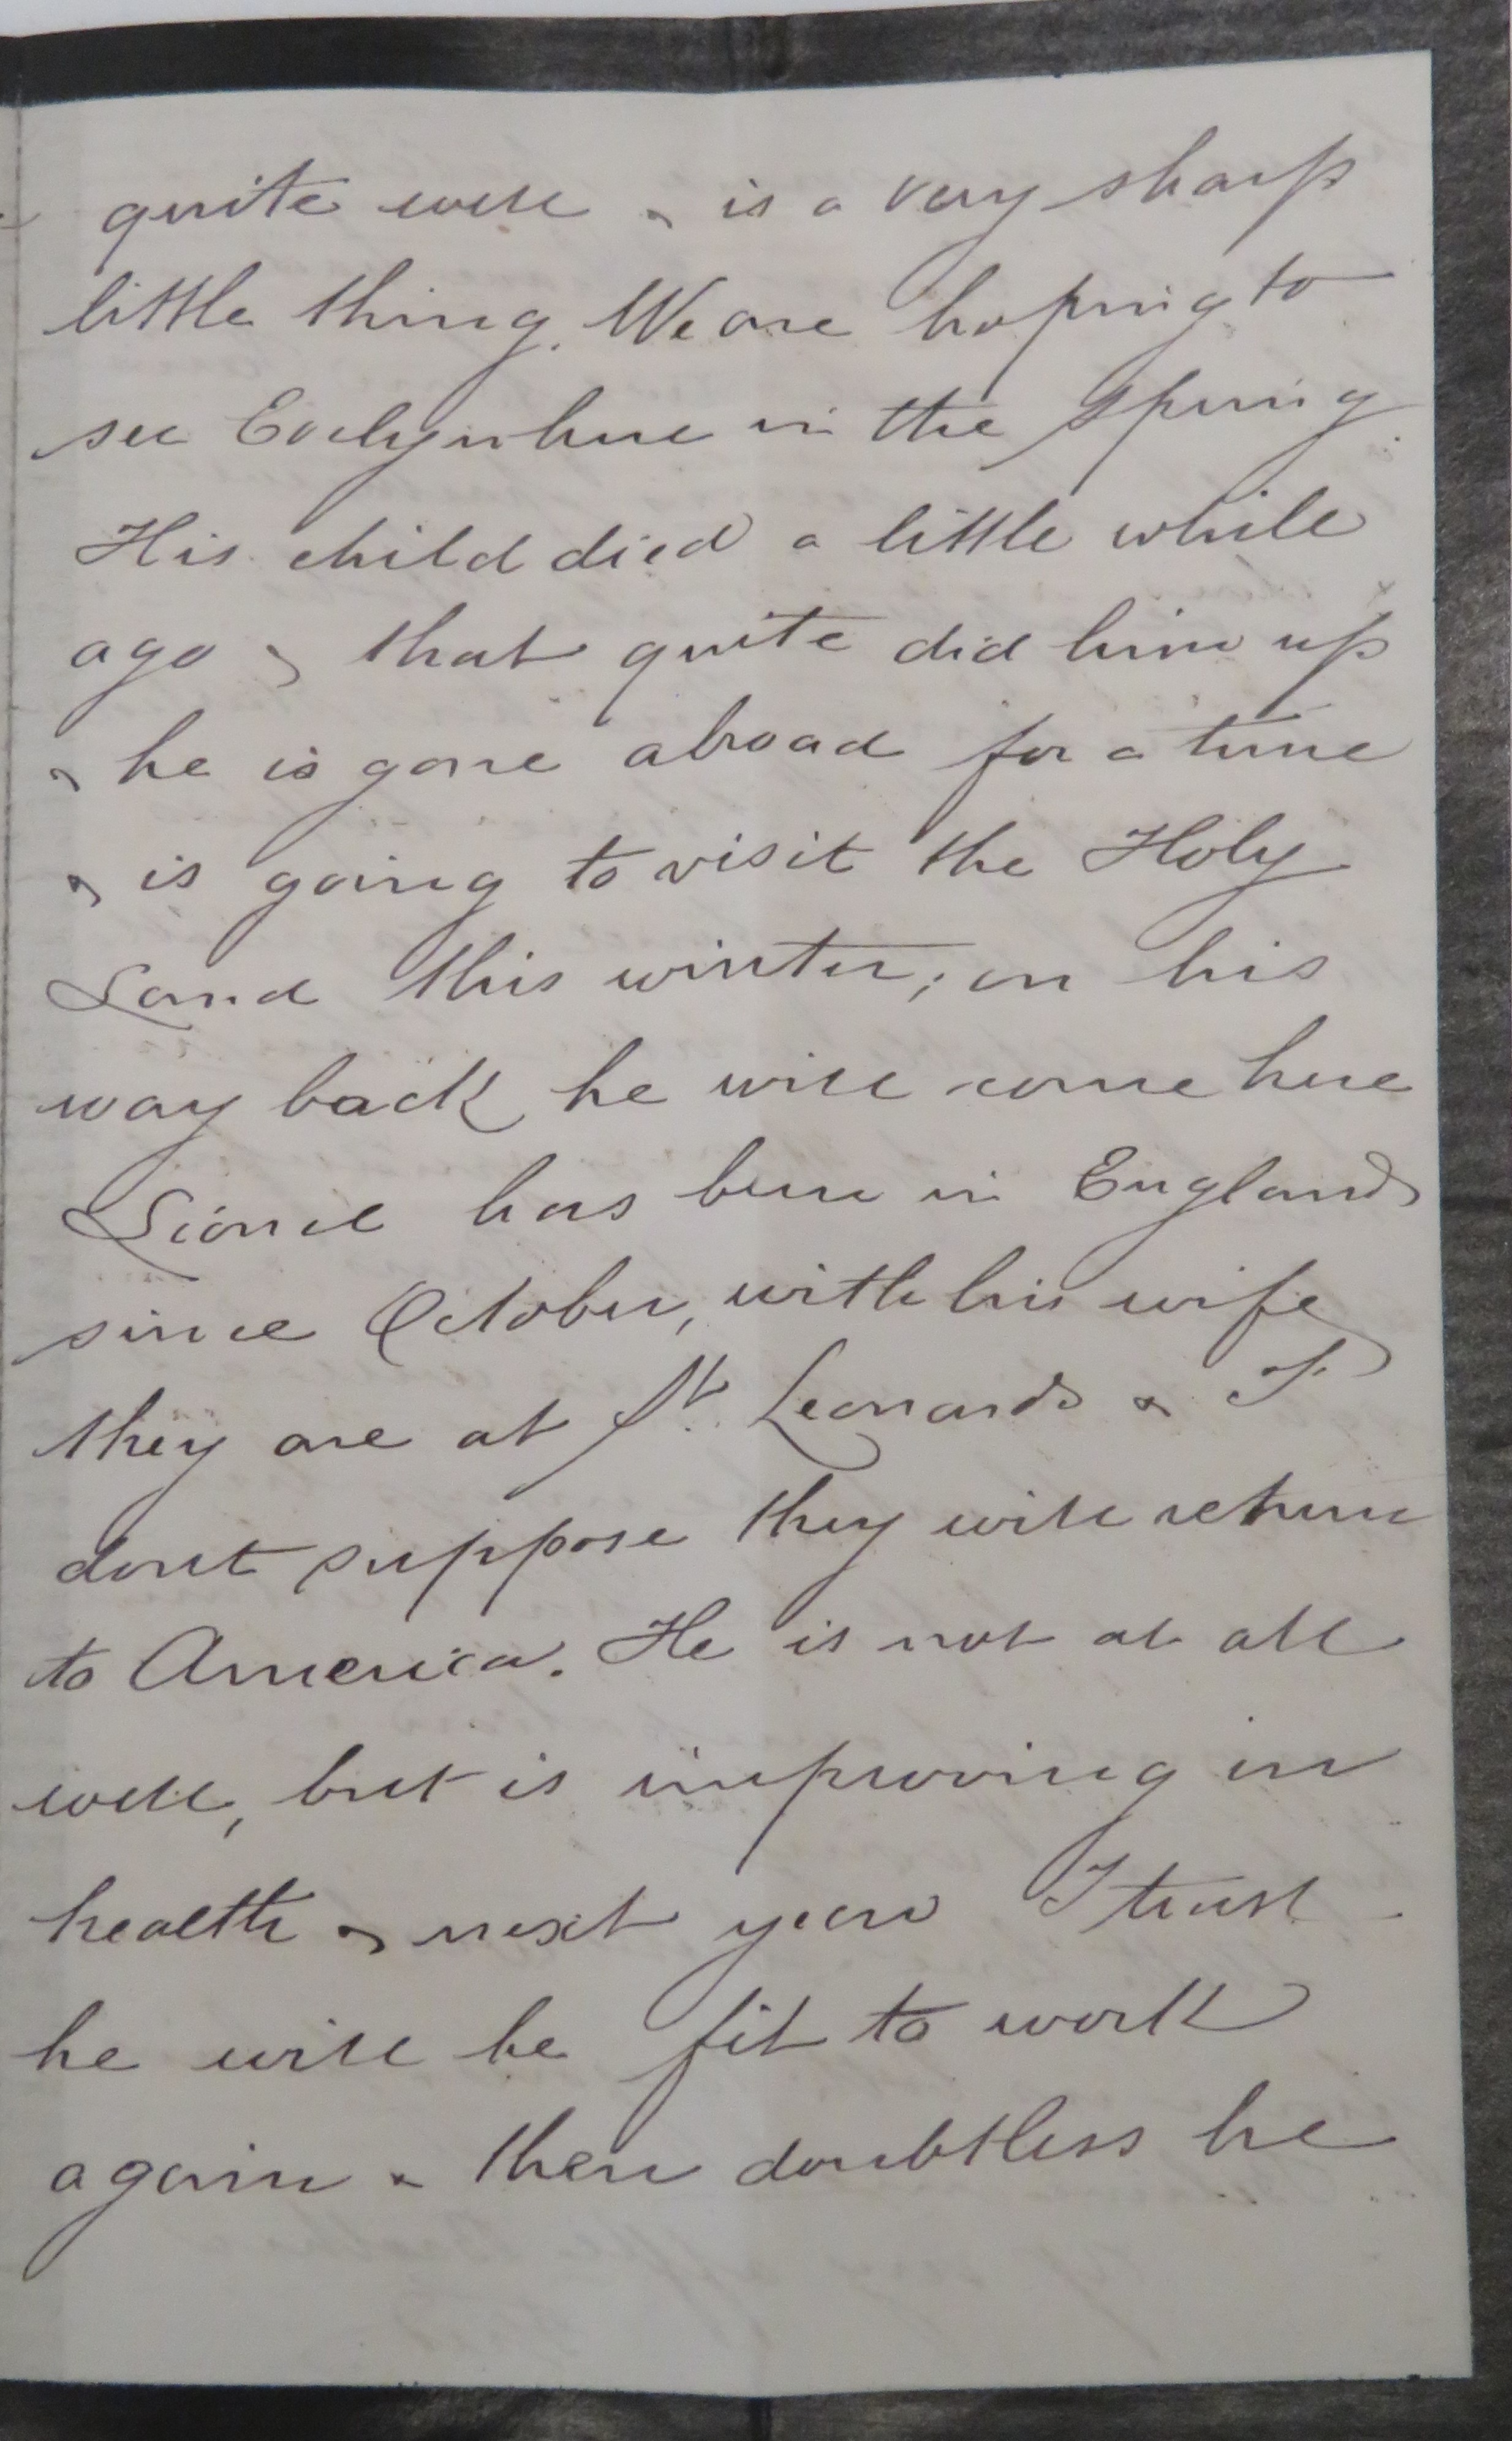 quite well & is a very sharp
little thing. We are hoping to
see Evelyn here in the Spring.
His child died a little while
ago & that quite did him up
& he is gone abroad for a time
& is going to visit the Holy
Land this winter; on his
way back he will come here
Lionel has been in England
since October, with his wife
they are at St. Leonards & I
dont suppose they will return
to America. He is not at all
well, but is improving in
health & next year I trust
he will be fit to work
again & then doubtless he